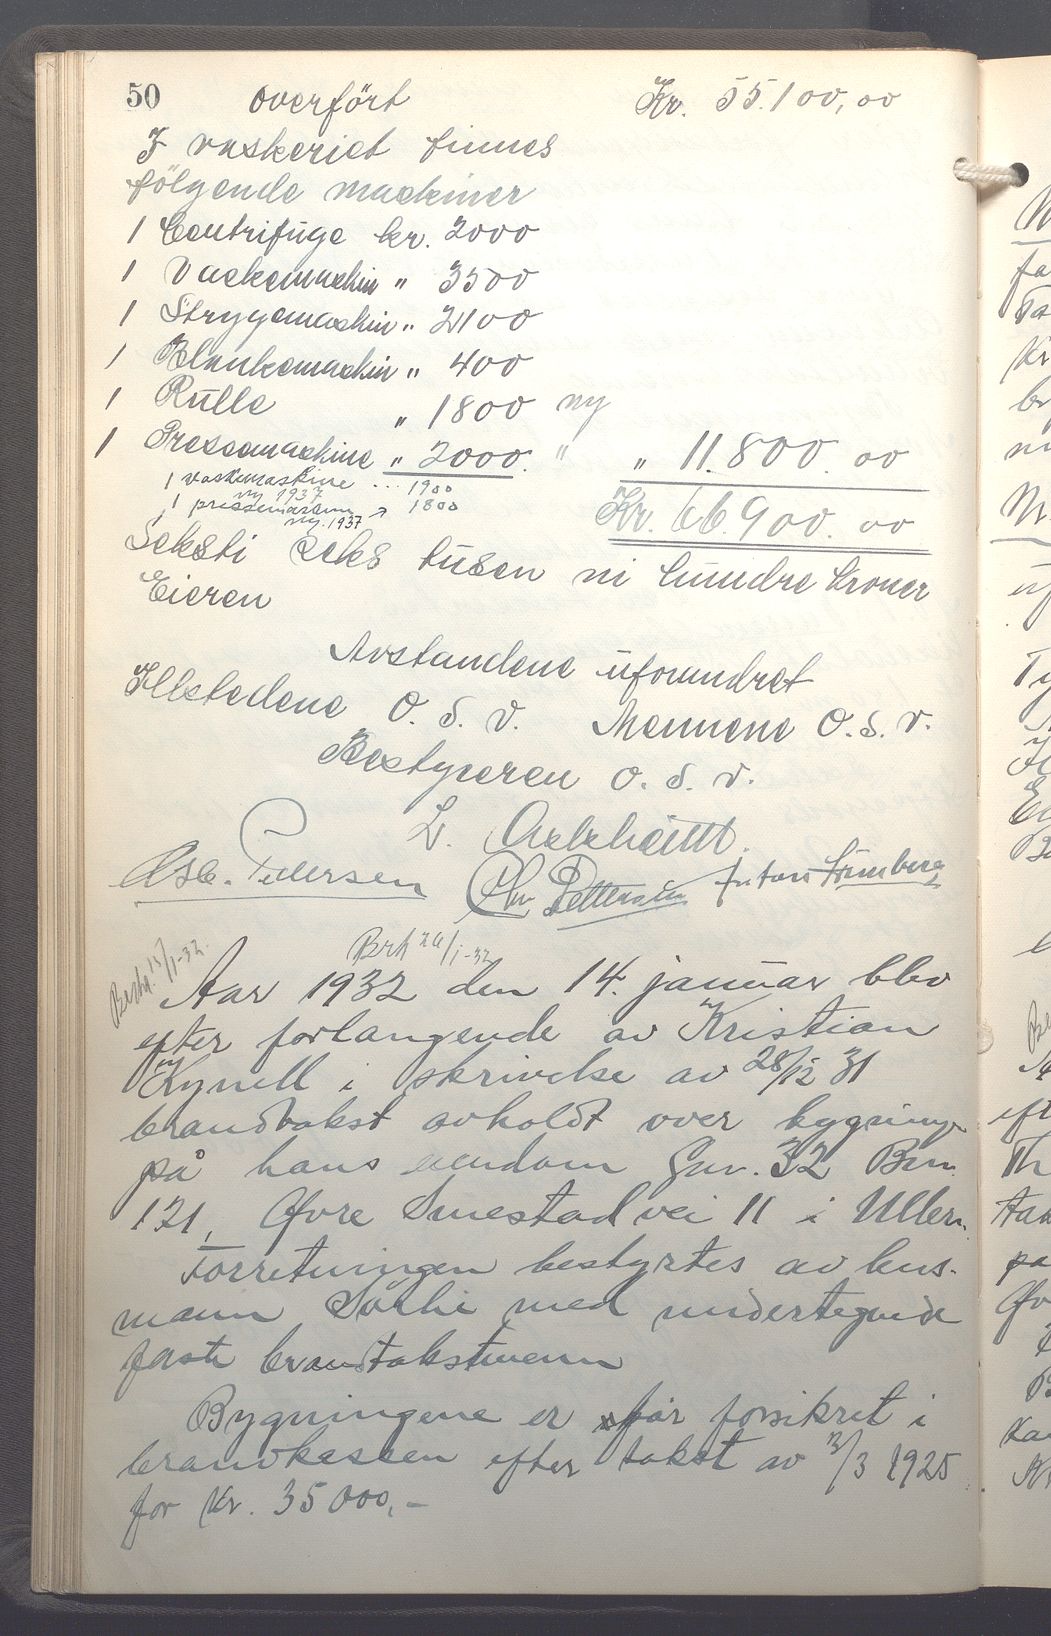 50 Overført Kr. 55.100,00
I vaskeriet finnes
følgende maskiner
1 Centrifuge kr. 2000
1 Vaskemaskin " 3500
1 Strygemaskin " 2100
1 Blankemaskin " 400
1 Rulle " 1800 ny
1 Pressemaskine " 2000. " " 11.800.00
1 vaskemaskine ... 1900
ny 1937
1 pressemaskin " 1800
ny. 1937
Kr. 66.900.00
Seksti seks tusen ni hundre kroner
Eieren
Avstandene uforandret
Illstedene O. S. V. Mennene O. S. V.
Bestyreren O. S. V.
L.
Osc. Pedersen Chr Pettersen Anton Lundberg
Brk 26/1-32
15/1-32.
Aar 1932 den 14. januar blev
efter forlangende av Kristian
Kynell i skrivelse av 28/12 31
brandtakst avholdt over bygninge
på hans eiendom Gnr. 32 Brn.
121, Øvre Smestad vei 11 i Ullern.
Forretningen bestyrtes av lens-
mann Sørlie med undertegnede
faste brandtakstmenn
Bygningene er før forsikret i
brandkassen efter takst av /3 1925
for kr. 35000,-